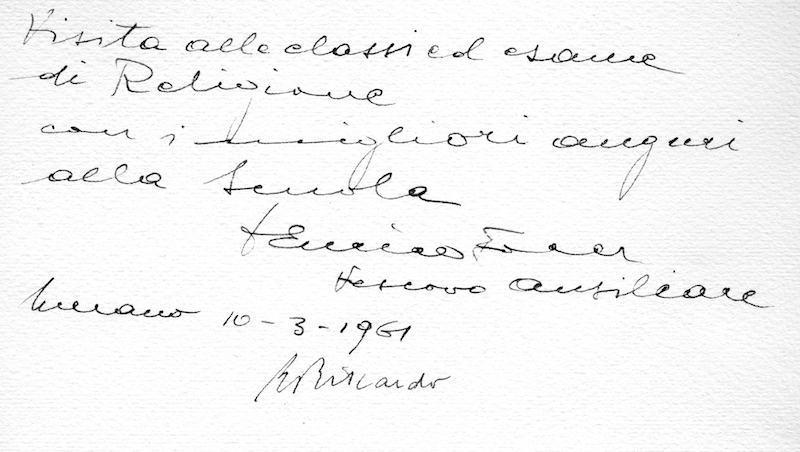 Visita alle classi ed esame
di Religione
con i migliori auguri
alla Scuola
+ Enrico
Vescovo ausiliare
Merano 10-3-1961